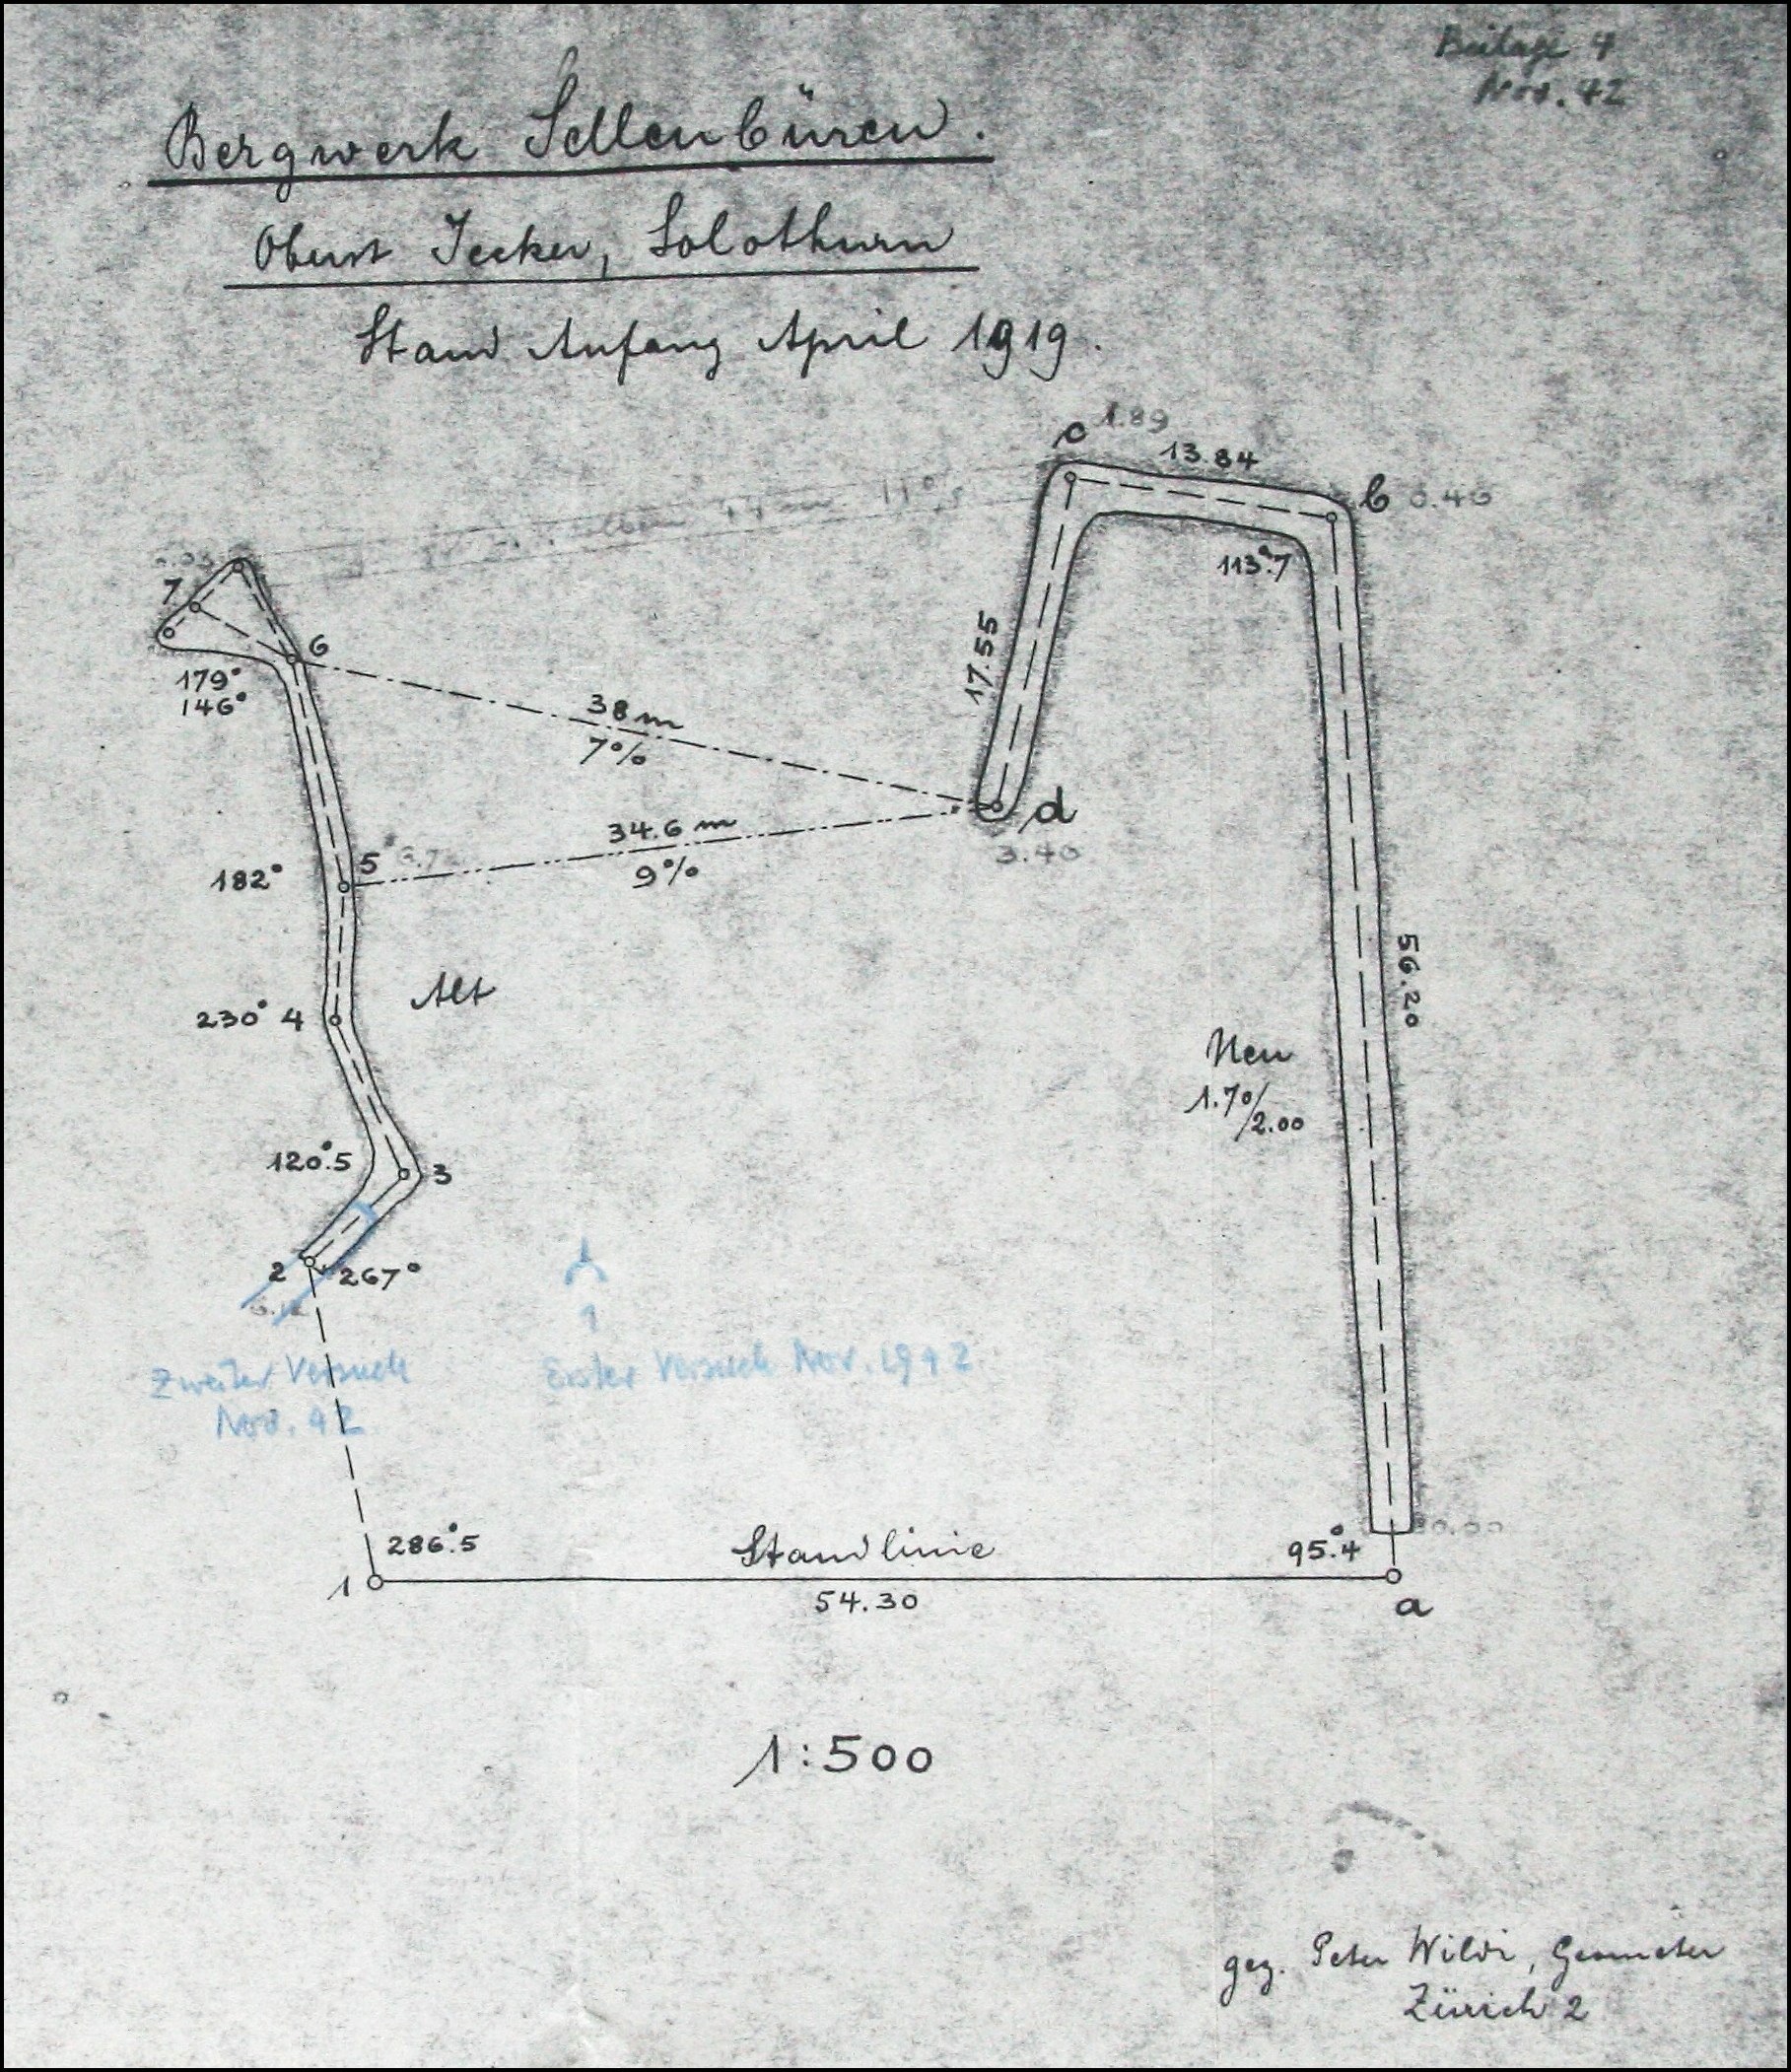 Beilage 4
Nov. 42
Bergwerk Sellenbüren.
Oberst Jecker, Solothurn
Stand Anfang April 1919.
c 1.89
13.84
b 0.40
113°.7
17.55
7
6
179°
146°
38 m
7%
d
3.40
34.6 m
9%
5
182°
Alt
230° 4
56.20
Neu
1.70/2.00
120°.5
3
2
267°
1
Zweiter Versuch
Nov. 42
Erster Versuch Nov. 1942
286°.5
Standlinie
95°.4
1
54.30
a
1:500
gez. Peter Wildi, Geometer
Zürich 2